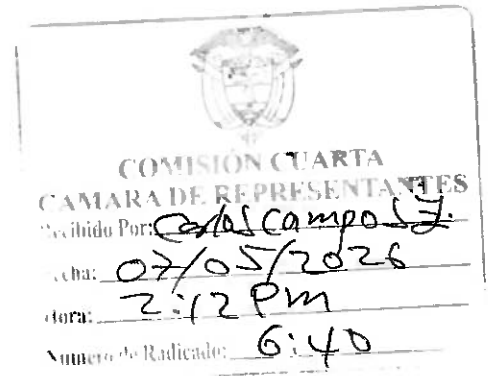 COMISIÓN CUARTA
CAMARA DE REPRESENTANTES
Recibido Por: Carlos Campos J.
Fecha: 07/05/2026
Hora: 2:12 pm
Numero de Radicado: 6:40